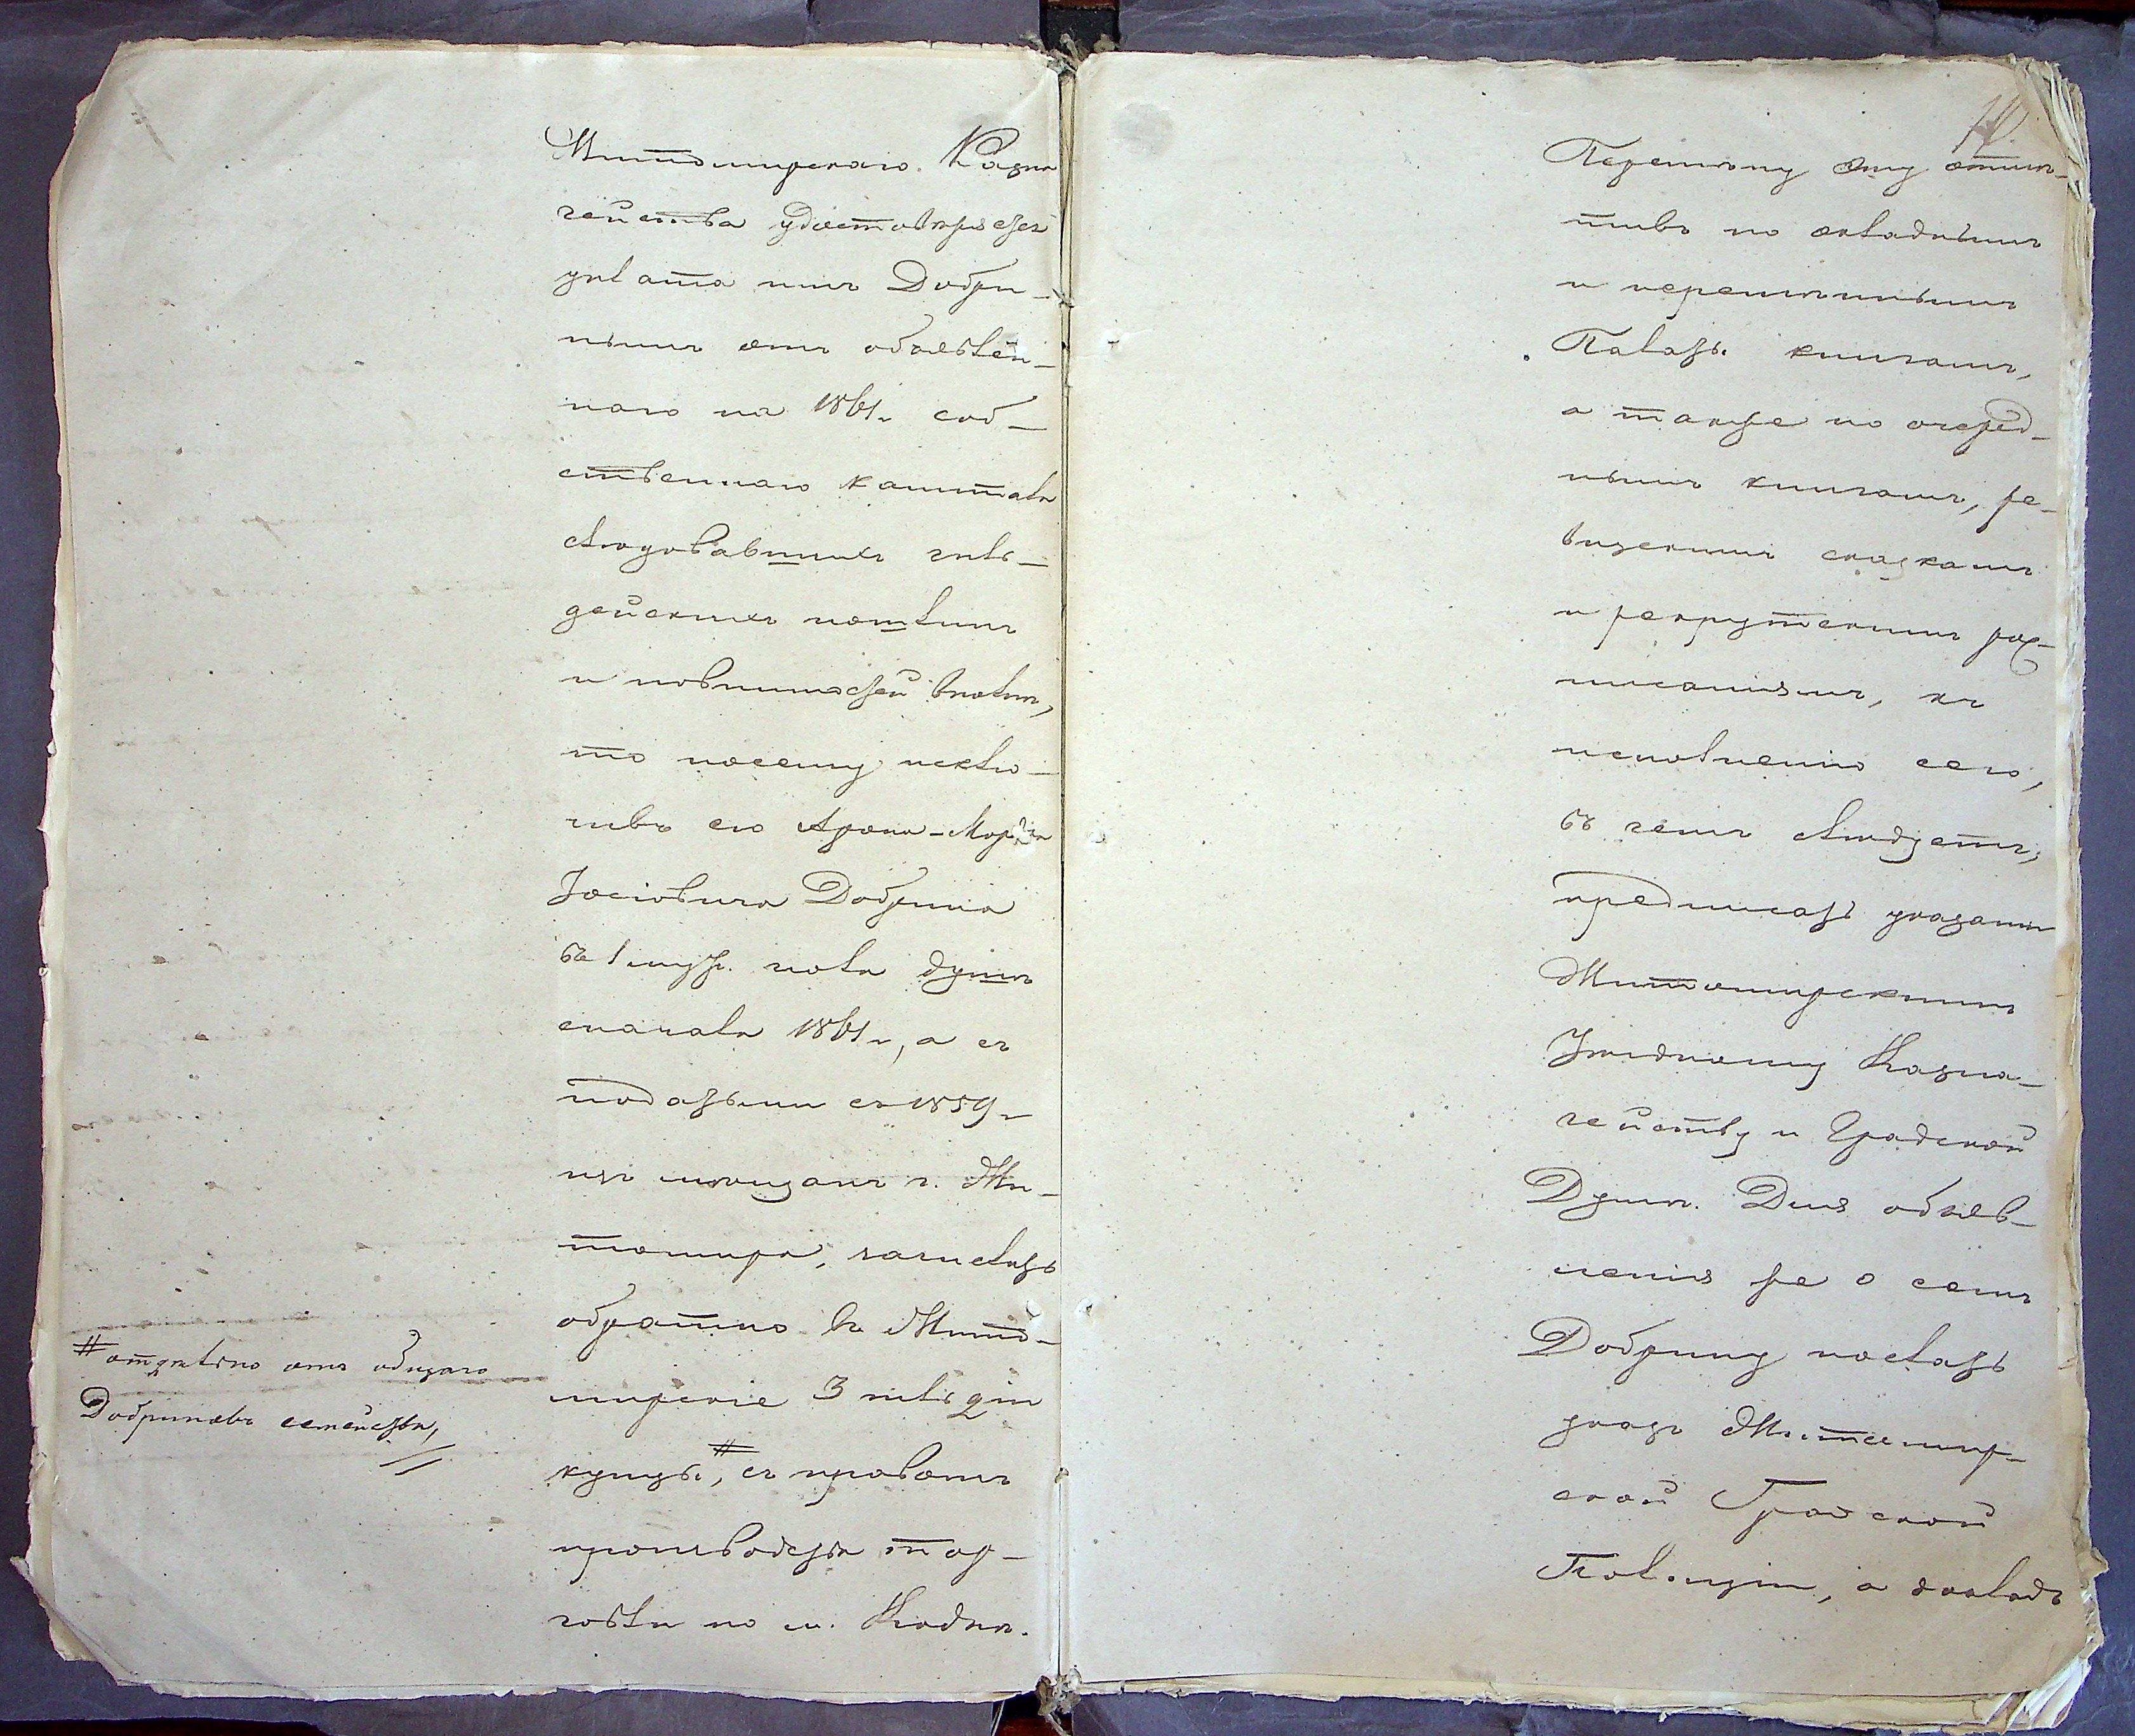 Житомирскаго Казна
чейства удостовѣряется
уплата имъ Добри-
нымъ отъ объявлен-
наго на 1861 г. соб-
ственнаго капитала
слѣдовавшихъ гиль-
дейскихъ пошлинъ
и повинностей вполнѣ,
то посему исклю-
чивъ его Арона-Мордка
Іосіовича Добрина
въ 1 муж. пола душѣ
сначала 1861 г., а съ
податьми съ 1859 г.
изъ мѣщанъ г. Жи-
томира, зачислить
обратно въ Жито-
мирскіе 3 гильдіи
купцы #, съ правомъ
производства тор-
говли по м. Кодни.
# отдѣльно отъ общаго
Добриновъ семейства,
Перемѣну эту отмѣ-
тивъ по окладнымъ
и перемѣннымъ
Палаты книгамъ,
а также по очеред-
нымъ книгамъ, ре-
визскимъ сказкамъ
и рекрутскимъ рос-
писаніямъ, къ
исполненію сего,
въ чемъ слѣдуетъ,
предписать указами
Житомирскимъ
Уѣздному Казна-
чейству и Градской
Думѣ. Для объяв-
ленія же о семъ
Добрину послать
указъ Житомир-
ской Градской
Полиціи, а докладъ